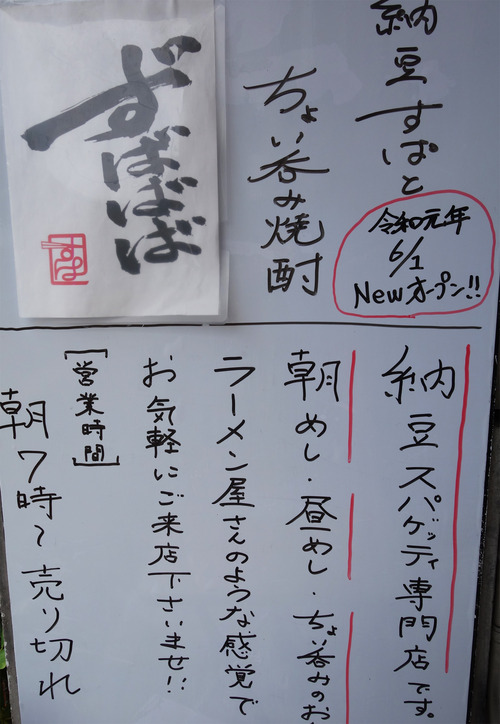 納豆すぱと
ちょい呑み焼酎
ずばばば
すば
令和元年
6/1
Newオープン!!
納豆スパゲッティ専門店です。
朝めし・昼めし・ちょい呑みのお
ラーメン屋さんのような感覚で
お気軽にご来店下さいませ!!
[営業時間]
朝7時~売り切れ